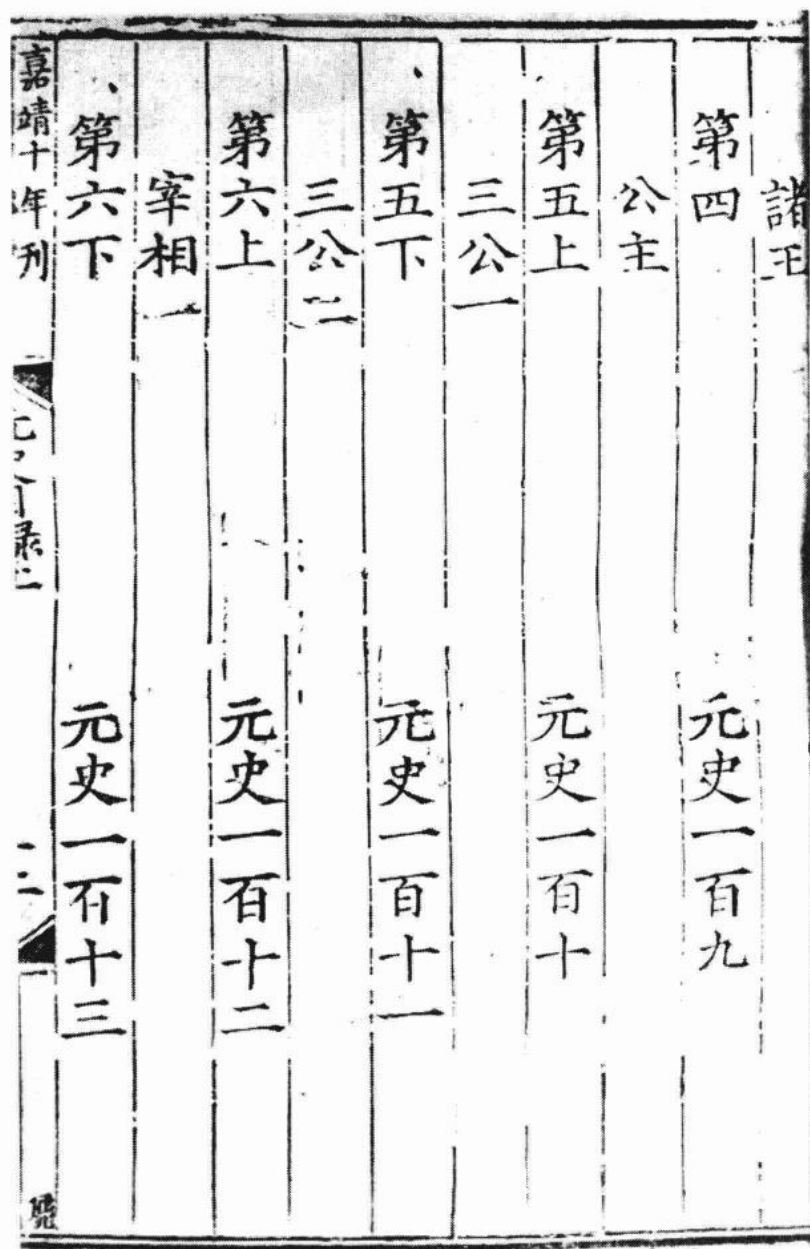 諸王
第四 元史一百九
公主
第五上 元史一百十
三公一
第五下 元史一百十一
三公二
第六上 元史一百十二
宰相一
第六下 元史一百十三
嘉靖十年刊